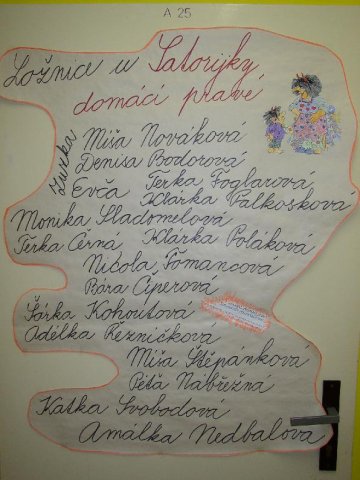 A 25
Ložnice u Satorijky
domácí pravé
Míša Nováková
Denisa Bodorová
Zuzka
Evča Terka Foglarová
Klárka Falkosková
Monika Sladomelová
Terka Černá Klárka Poláková
Nicola Fomancová
Bára Ciperová
Šárka Kohoutová
Adélka Řezníčková
Míša Štěpánková
Péťa Nábřežná
Katka Svobodova
Amálka Nedbalova